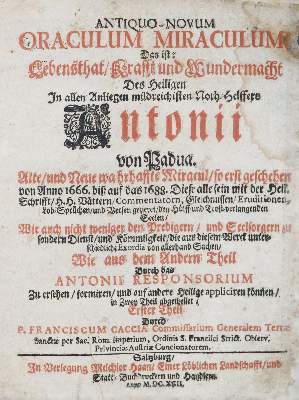 ANTIQUO-NOVUM
ORACULUM MIRACULUM
Das ist:
Lebensthat/Krafft und Wundermacht
Des Heiligen
In allen Anligen mildreichisten Noth-Helffers
Antonii
von Padua.
Alte/ und Neue wahrhaffte Miracul/ so erst geschehen
von Anno 1666. biß auf das 1688. Dise alle sein mit der Heil.
Schrifft/ H.H. Vättern/ Commentatorn, Gleichnussen/ Eruditionen,
Lob-Sprüchen/ und Versen gezieret/ den Hülff und Trost-verlangenden
Seelen/
Wie auch nicht weniger den Predigern/ und Seelsorgern zu
sondern Dienst/ und Kömmligkeit/ die aus disem Werck unter-
schiedliche Exempla von allerhand Sachen/
Wie aus dem Andern Theil
Durch das
ANTONII RESPONSORIUM
Zu ersehen/ formiren/ und auf andere Heilige appliciren können/
in Zwey Theil abgetheilet/
Erster Theil
Durch
P. FRANCISCUM CACCIA Commissarium Generalem Terræ
Sanctæ per Sac. Rom. Imperium, Ordinis S. Francisci Strict. Observ.
Provinciæ Austriæ Concionatorem.
Saltzburg/
In Verlegung Melchior Haan/ Einer Löblichen Landschafft/ und
Statt-Buchdruckern und Handlern.
Anno M.DC.XCII.